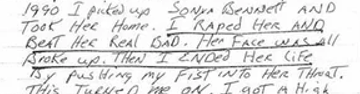 1990 I picked up Sonya Bennett AND
Took Her Home. I Raped Her AND
Beat Her Real Bad. Her Face was all
Broke up. Then I Ended Her Life
By pushing my Fist into Her Throat.
This Turned me on. I got a High